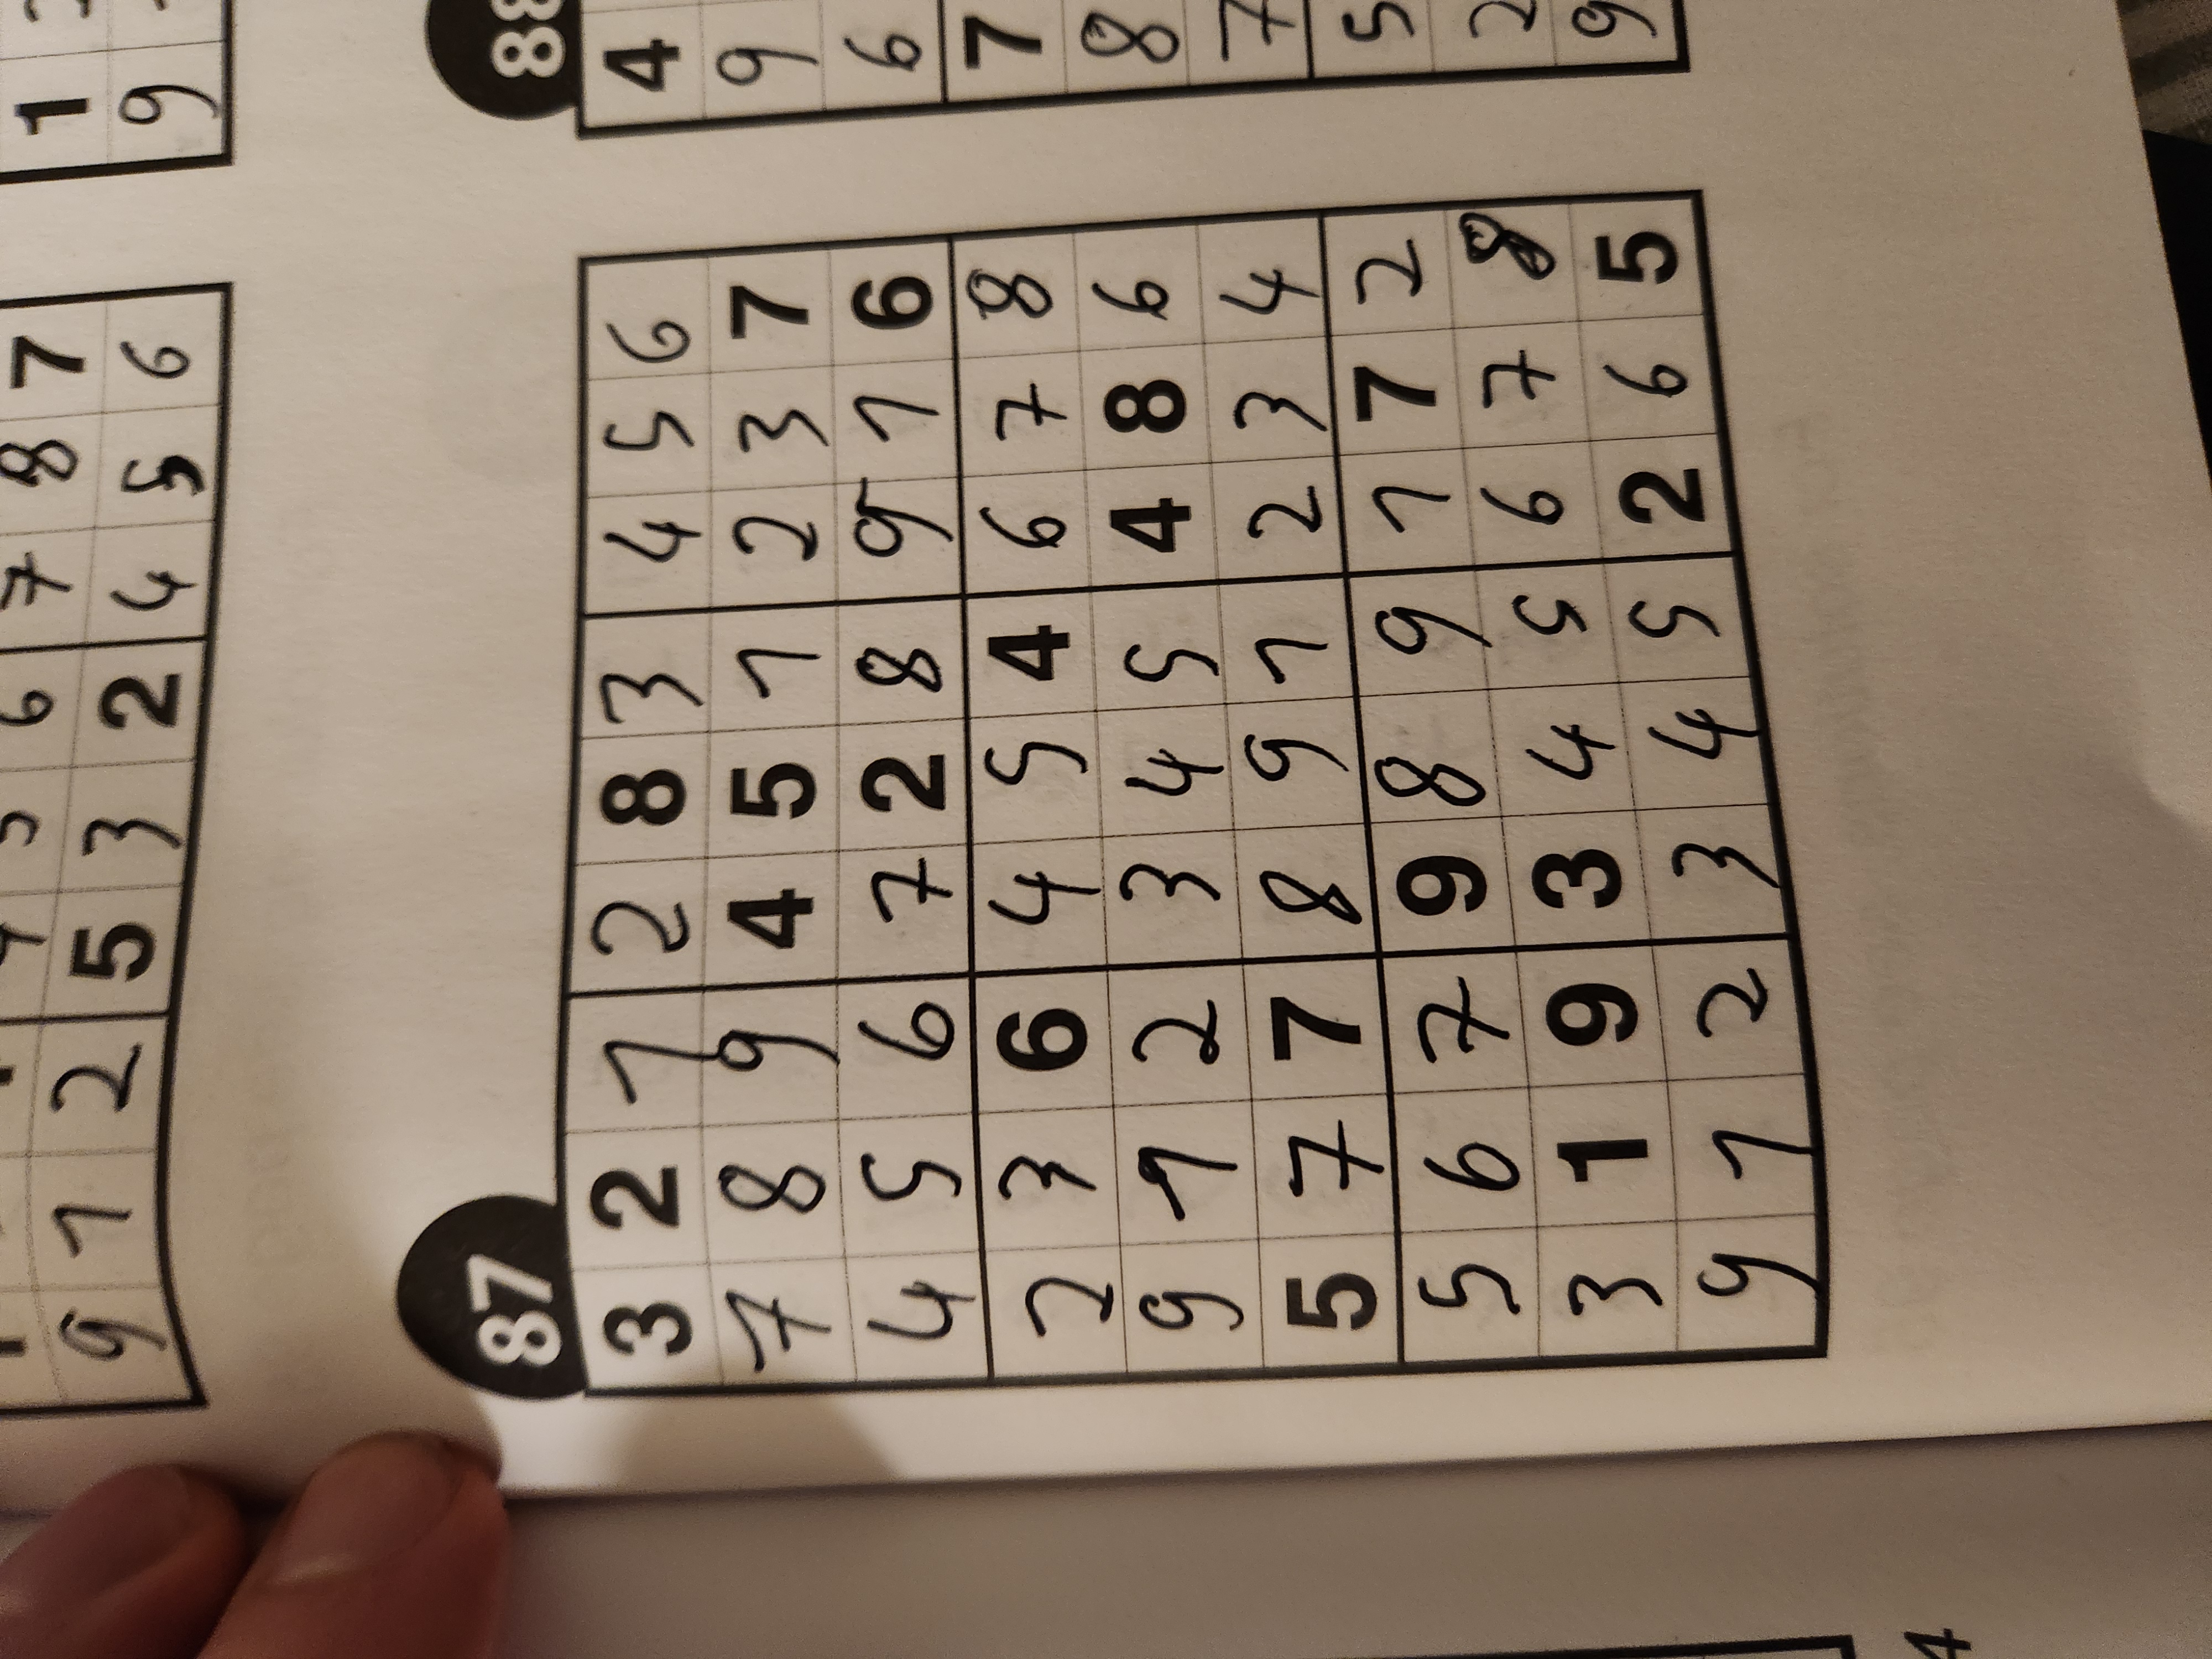 4 5 6 7 8 7 1
9 1 2 5 3 2 4 5 6 9
87 88
3 2 1 2 8 3 4 5 6 4
7 8 9 4 5 1 2 3 7 9
4 5 6 7 2 8 9 1 6 6
2 3 6 4 5 4 6 7 8 7
9 1 2 3 4 5 4 8 6 8
5 7 7 8 9 1 2 3 4 7
5 6 7 9 8 9 1 7 2 5
3 1 9 3 4 5 6 7 8 2
9 1 2 3 4 5 2 6 5 9
4